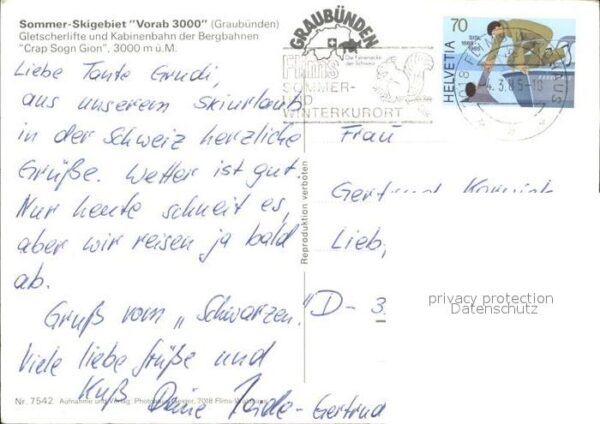 Sommer-Skigebiet "Vorab 3000" (Graubünden)
Gletscherlifte und Kabinenbahn der Bergbahnen
"Crap Sogn Gion", 3000 m ü.M.
GRAUBÜNDEN
Die Ferienecke
der Schweiz
Flims
SOMMER-
UND
WINTERKURORT
70
HELVETIA
4.3.85-18
Liebe Tante Gerudi,
aus unserem Skiurlaub
in der Schweiz herzliche
Grüße. Wetter ist gut.
Nur heute schneit es,
aber wir reisen ja bald
ab.
Gruß vom "Schwarzen."
Viele liebe Grüße und
Kuß Deine Gertrud
Reproduktion verboten
Frau
Gertrud
Lieb,
D- 3
privacy protection
Datenschutz
Nr. 7542 Aufnahme und Verlag: 7018 Flims